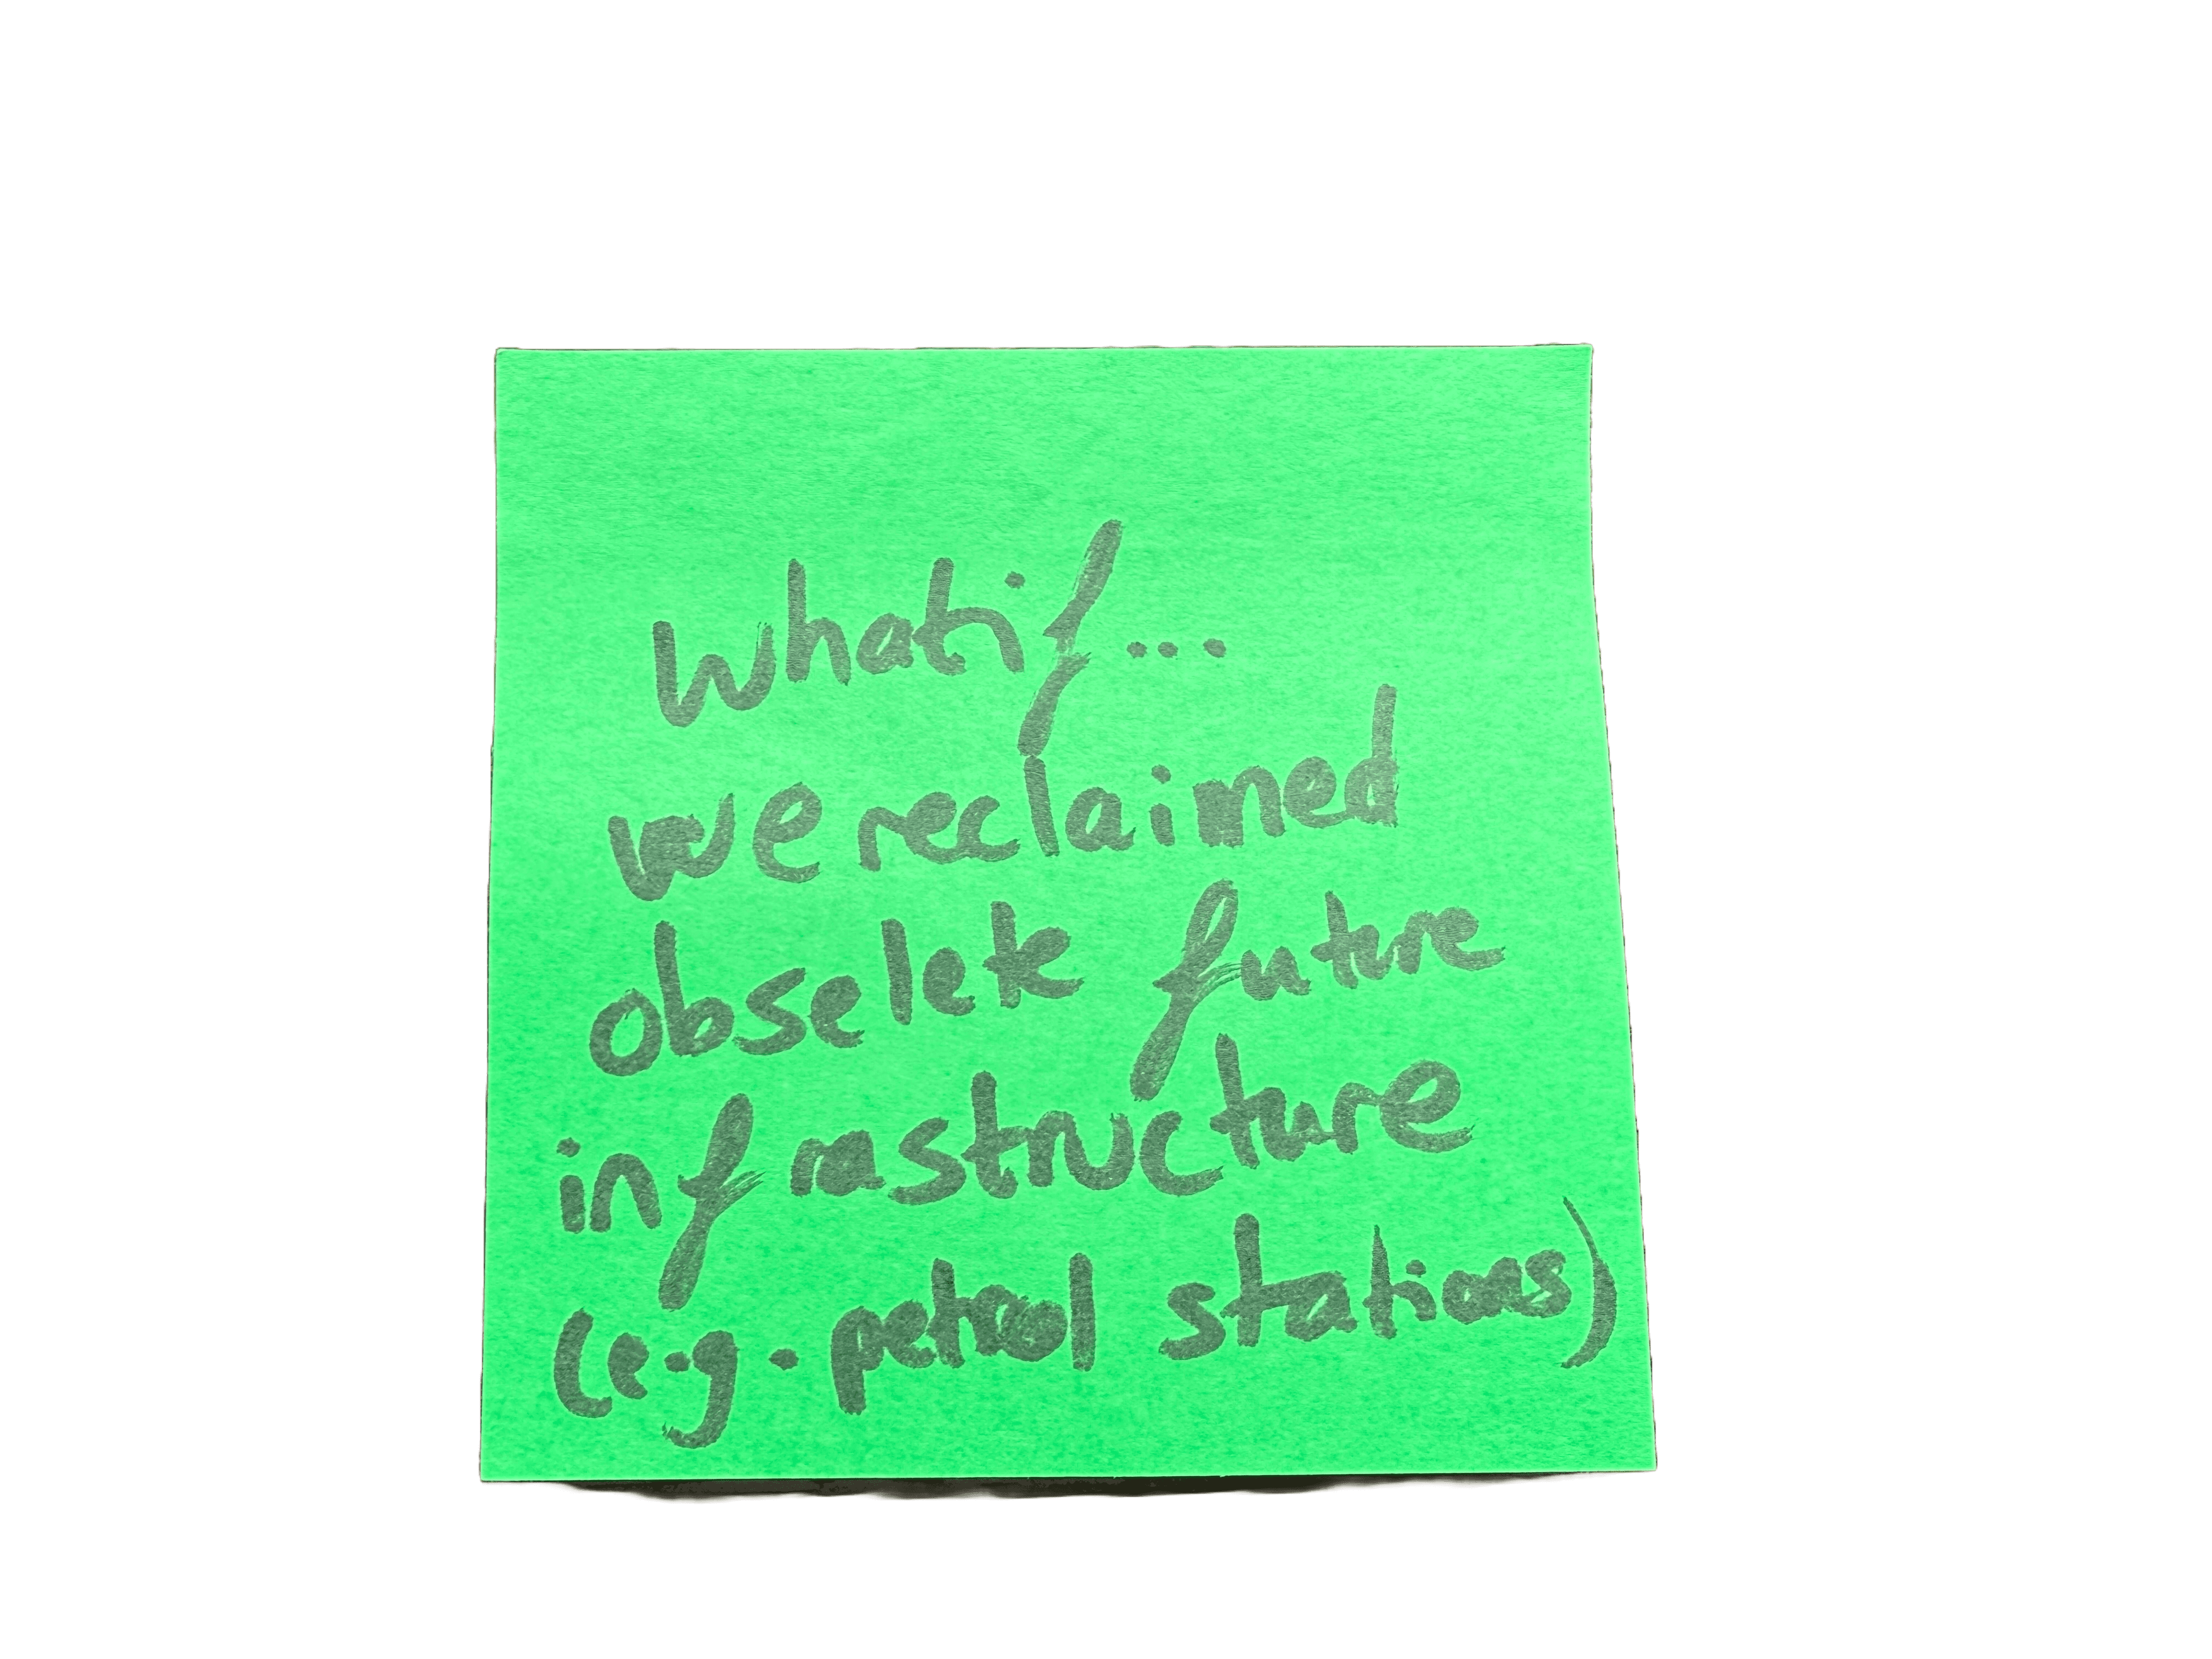 What if...
we reclaimed
obselete future
infrastructure
(e.g. petrol stations)